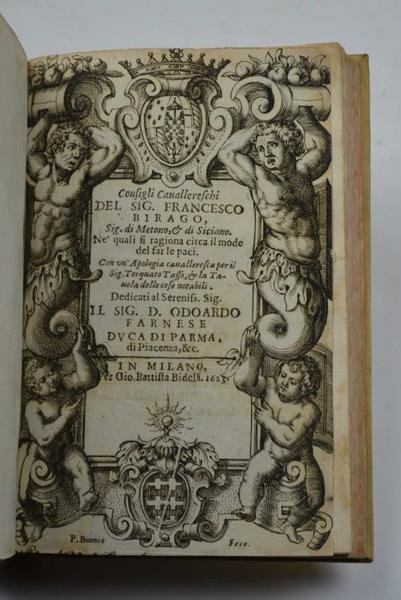 Consigli Cauallereschi
DEL SIG. FRANCESCO
BIRAGO,
Sig. di Metono, & di Siciano.
Ne' quali si ragiona circa il modo
del far le paci.
Con vn' Apologia caualleresca per il
Sig. Torquato Tasso, & la Ta-
uola delle cose notabili.
Dedicati al Sereniss. Sig.
IL SIG. D. ODOARDO
FARNESE
DVCA DI PARMA,
di Piacenza, &c.
IN MILANO,
Per Gio. Battista Bidelli.
P. Bianco Fece.